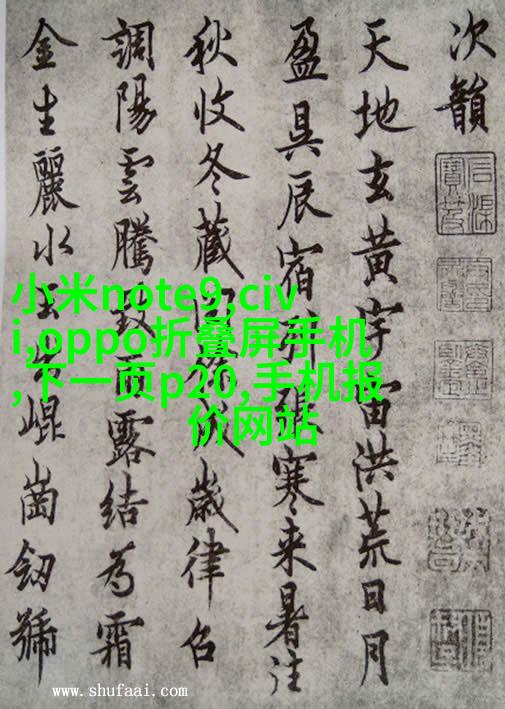 次韻
天地玄黄宇宙洪荒日月
盈昃辰宿列張寒来暑往
秋收冬藏閏餘成歲律召
調陽雲騰致雨露結為霜
金生麗水玉出崐崗劒號
小米note9,civ
i,oppo折叠屏手机
,下一页p20,手机报
价网站
www.shufaai.com